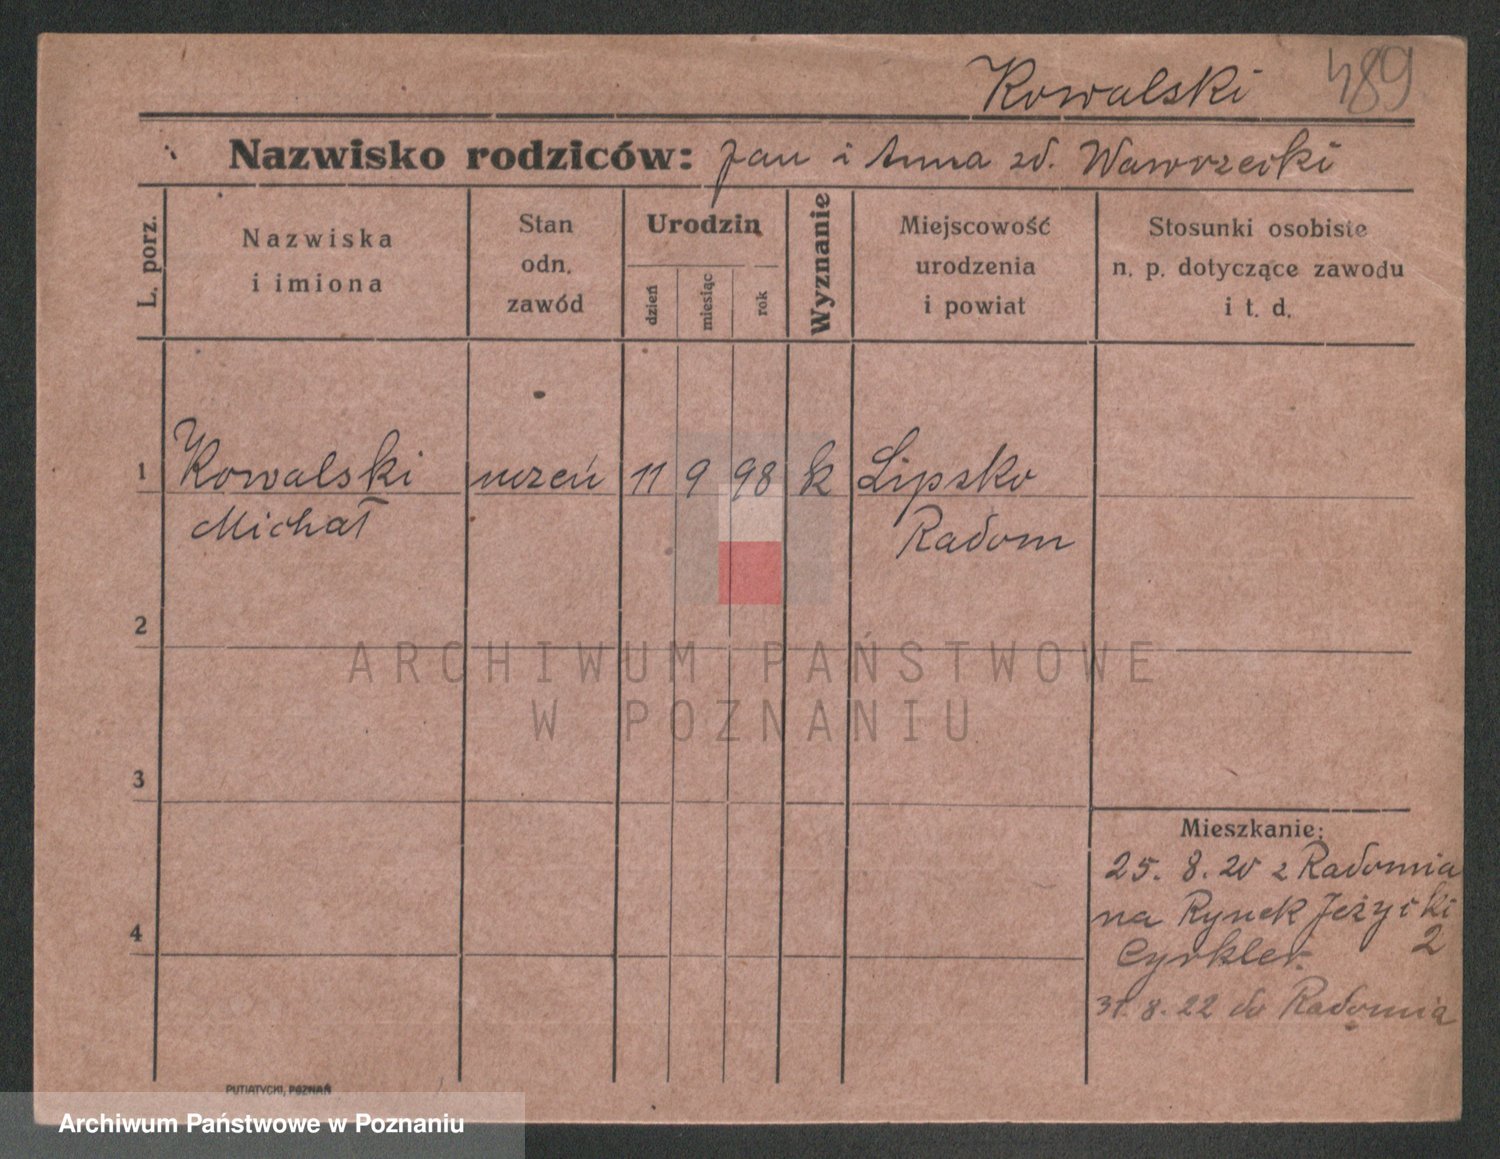 Kowalski 489
Nazwisko rodziców: Jan i Anna zd. Wawrzecki
L. porz.
Nazwiska
i imiona
Stan
odn.
zawód
Urodzin
dzień
miesiąc
rok
Wyznanie
Miejscowość
urodzenia
i powiat
Stosunki osobiste
n. p. dotyczące zawodu
i t. d.
1 Kowalski uczeń 11 9 98 k Lipsko
Michał Radom
2
ARCHIWUM PAŃSTWOWE
W POZNANIU
3
Mieszkanie:
25. 8. 20 z Radomia
na Rynek Jeżycki
2
4
31. 8. 22 do Radomia
PUTIATYCKI, POZNAŃ
Archiwum Państwowe w Poznaniu